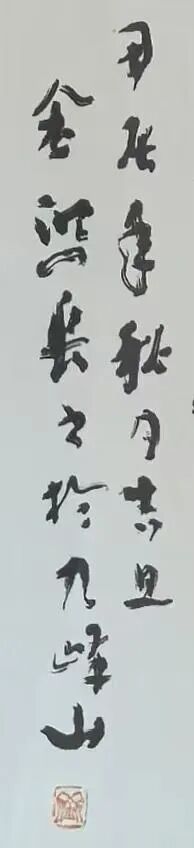 甲辰年秋月吉旦
金 书於九峰山